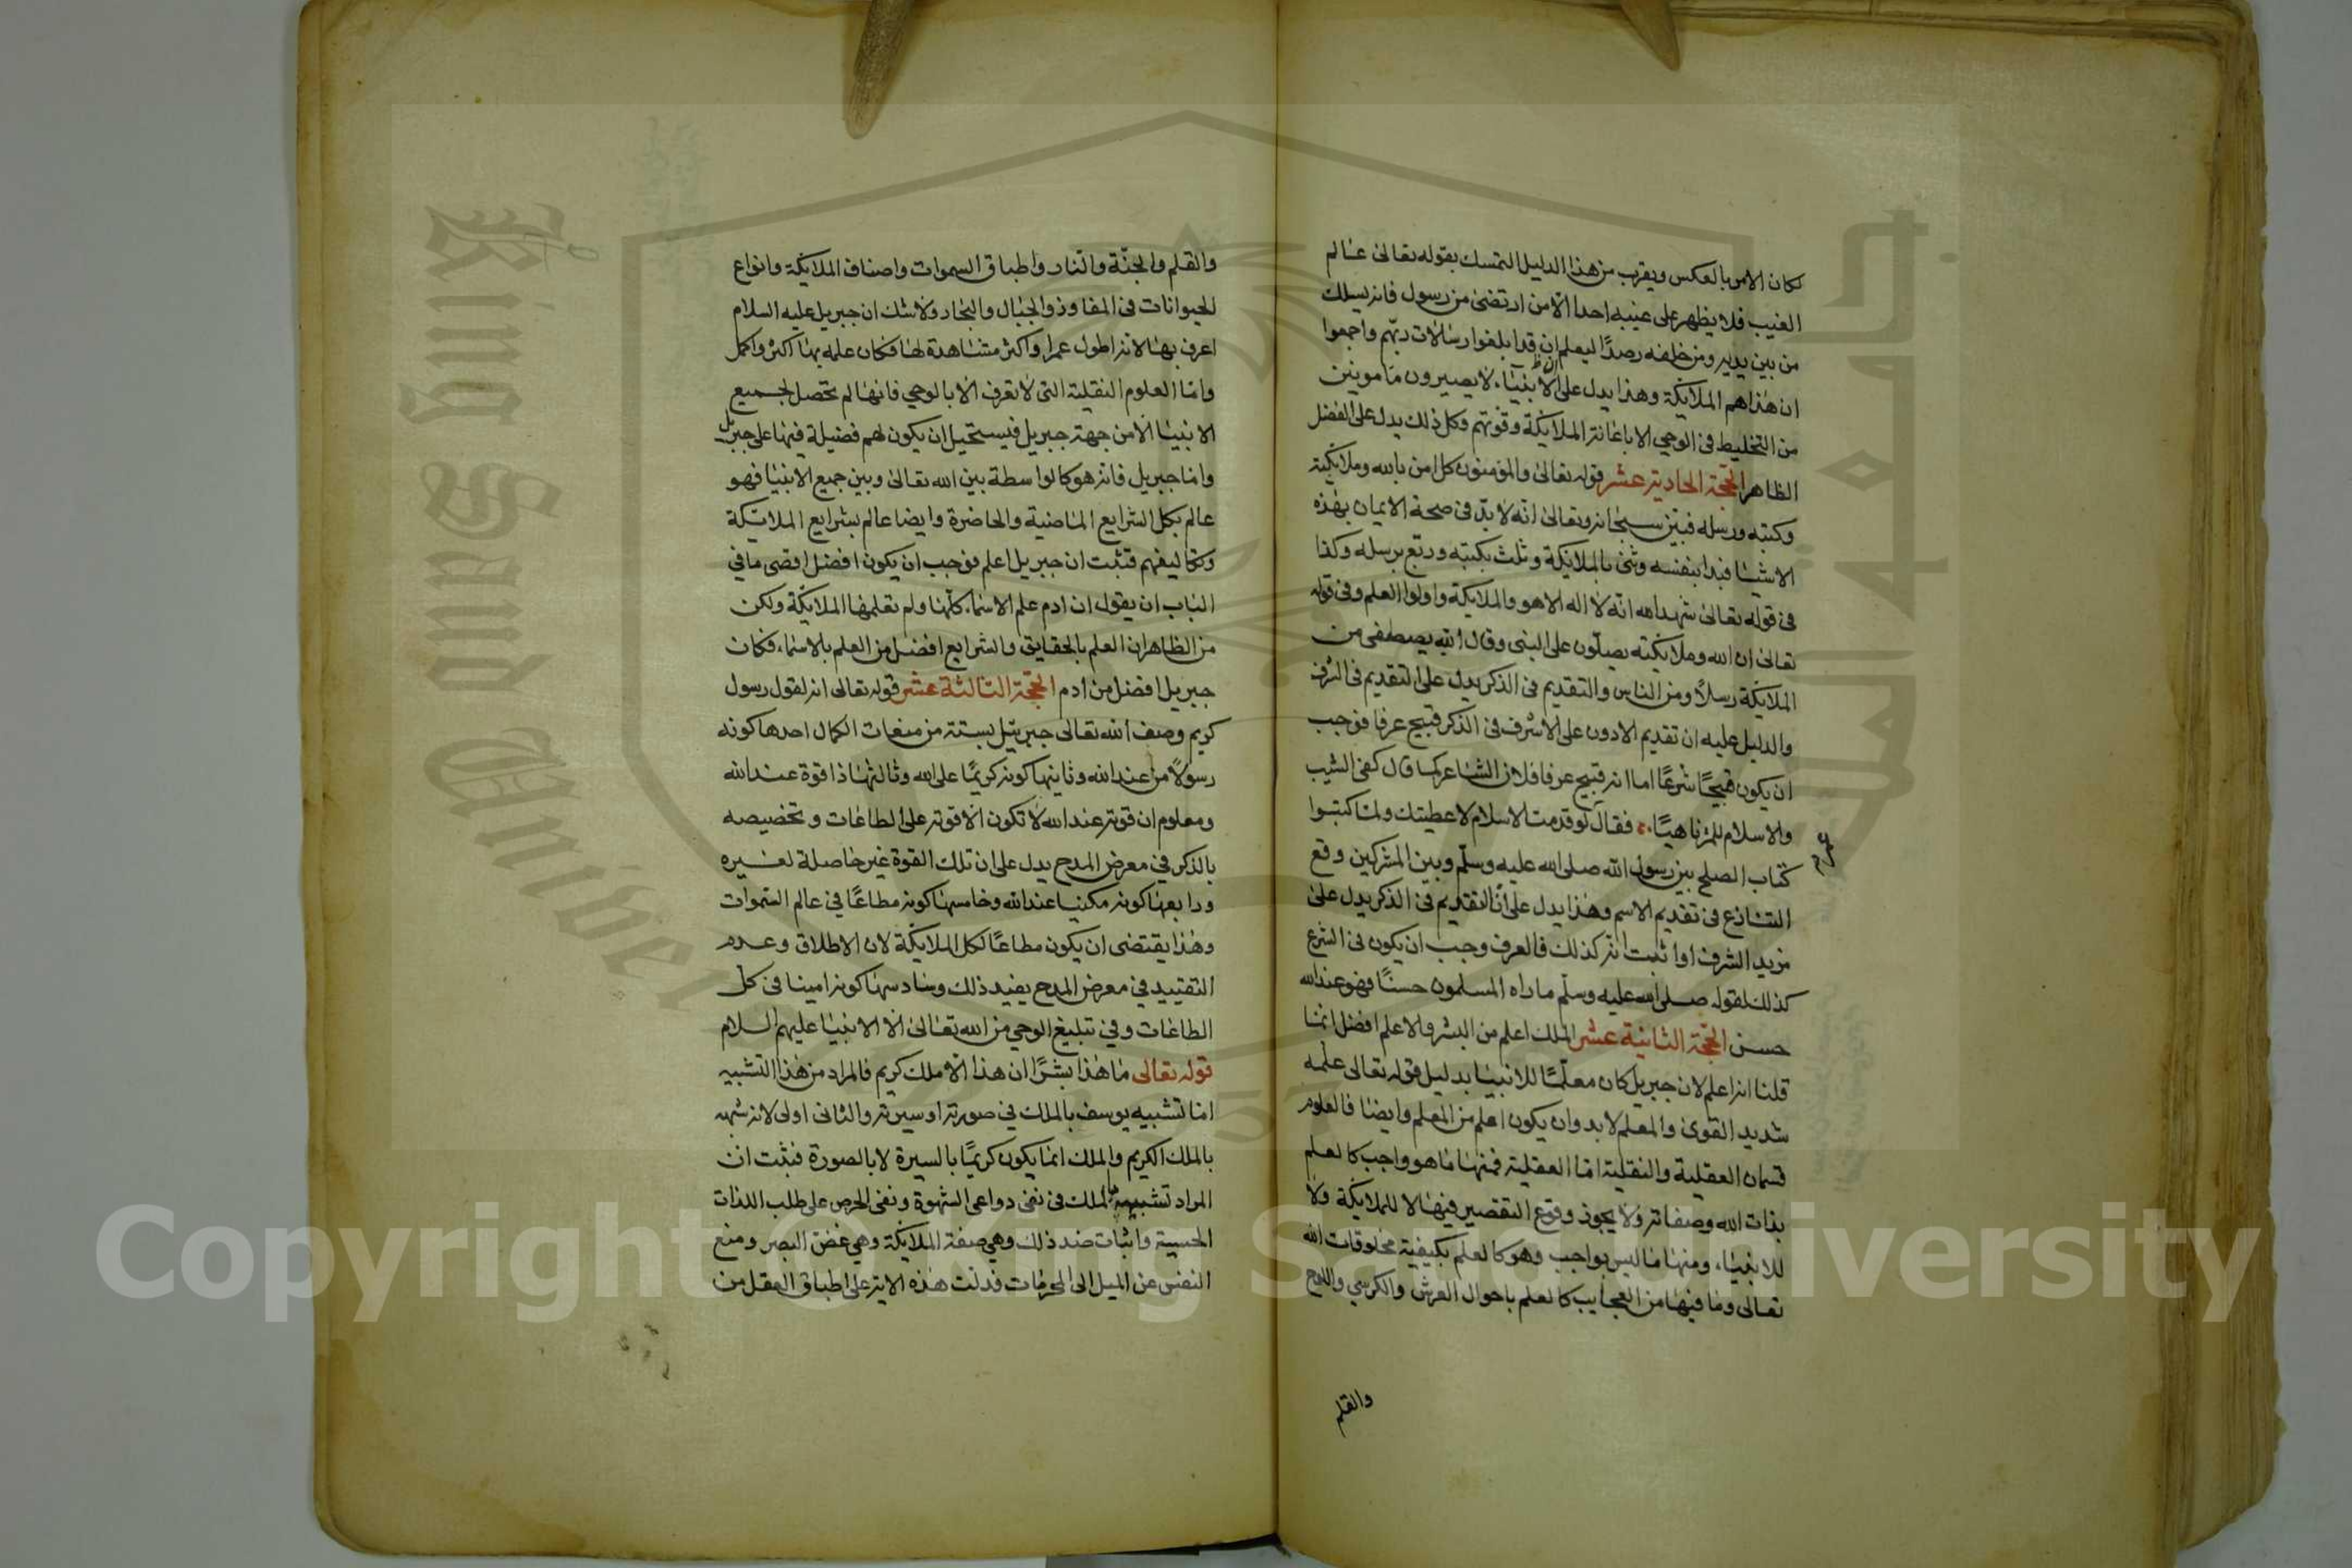 لكان الامر بالعكس ويقرب من هذا الدليل التمسك بقوله تعالى عالم
الغيب فلا يظهر على غيبه احدا الا من ارتضى من رسول فانه يسلك
من بين يديه ومن خلفه رصدًا ليعلم ان قد ابلغوا رسالات ربهم واجمعوا
ان هذا هم الملايكة وهذا يدل على ان الانبياء لا يصيرون مامونين
من التخليط فى الوحى الا باعانة الملايكة وقوتهم وكل ذلك يدل على الفضل
الظاهر الحجة الحادية عشر قوله تعالى والمؤمنون كل امن بالله وملايكته
وكتبه ورسله فبين سبحانه وتعالى انه لا بد فى صحة الايمان بهذه
الاشيا فبدا بنفسه وثنى بالملايكة وثلث بكتبه وربع برسله وكذا
فى قوله تعالى شهد الله انه لا اله الا هو والملايكة واولوا العلم وفى قوله
تعالى ان الله وملايكته يصلون على النبى وقال الله يصطفى من
الملايكة رسلًا ومن الناس والتقديم فى الذكر يدل على التقديم فى الشرف
والدليل عليه ان تقديم الادون على الاشرف فى الذكر قبيح عرفا فوجب
ان يكون قبيحًا شرعًا اما انه قبيح عرفا فلان الشاعر كما قال كفى الشيب
والاسلام للمرء ناهيًا فقال لو قدمت الاسلام لاعطيتك ولما كتبوا
عمر
كتاب الصلح بين رسول الله صلى الله عليه وسلم وبين المشركين وقع
التنازع فى تقديم الاسم وهذا يدل على ان التقديم فى الذكر يدل على
مزيد الشرف واذا ثبت انه كذلك فالعرف وجب ان يكون فى الشرع
كذلك لقوله صلى الله عليه وسلم ما راه المسلمون حسنًا فهو عند الله
حسن الحجة الثانية عشر الملك اعلم من البشر والاعلم افضل انما
قلنا انه اعلم لان جبريل كان معلمًا للانبيا بدليل قوله تعالى علمه
شديد القوى والمعلم لا بد وان يكون اعلم من المعلم وايضا فالعلوم
قسمان العقلية والنقلية اما العقلية فمنها ما هو واجب كالعلم
بذات الله وصفاته ولا يجوز وقوع التقصير فيها لا للملايكة ولا
للانبياء ومنها ما ليس بواجب وهو كالعلم بكيفية مخلوقات الله
تعالى وما فيها من العجايب كالعلم باحوال العرش والكرسي واللوح
والقلم
والقلم والجنة والنار واطباق السموات واصناف الملايكة وانواع
الحيوانات فى المفاوز والجبال والبحار ولا شك ان جبريل عليه السلام
اعرف بها لانه اطول عمرا واكثر مشاهدة لها فكان علمه بها اكثر واكمل
واما العلوم النقلية التى لا تعرف الا بالوحي فانها لم تحصل لجميع
الانبيا الا من جهة جبريل فيستحيل ان يكون لهم فضيلة فيها على جبريل
واما جبريل فانه هو كالواسطة بين الله تعالى وبين جميع الانبيا فهو
عالم بكل الشرايع الماضية والحاضرة وايضا عالم بشرايع الملايكة
وتكاليفهم فثبت ان جبريل اعلم فوجب ان يكون افضل اقصى ما في
الباب ان يقول ان ادم علم الاسماء كلها ولم تعلمها الملايكة ولكن
من الظاهر ان العلم بالحقايق والشرايع افضل من العلم بالاسماء فكان
جبريل افضل من ادم الحجة الثالثة عشر قوله تعالى انه لقول رسول
كريم وصف الله تعالى جبريل بستة من صفات الكمال احدها كونه
رسولًا من عند الله وثانيها كونه كريمًا على الله وثالثها ذا قوة عند الله
ومعلوم ان قوته عند الله لا تكون الا قوته على الطاعات وتخصيصه
بالذكر في معرض المدح يدل على ان تلك القوة غير حاصلة لغيره
ورابعها كونه مكينا عند الله وخامسها كونه مطاعًا في عالم السموات
وهذا يقتضى ان يكون مطاعًا لكل الملايكة لان الاطلاق وعدم
التقييد في معرض المدح يفيد ذلك وسادسها كونه امينا فى كل
الطاعات وفي تبليغ الوحي من الله تعالى الا الانبيا عليهم السلام
قوله تعالى ما هذا بشرًا ان هذا الا ملك كريم فالمراد من هذا التشبيه
اما تشبيه يوسف بالملك في صورته او سيرته والثانى اولى لانه شبهه
بالملك الكريم والملك انما يكون كريمًا بالسيرة لا بالصورة فثبت ان
المراد تشبيهه بالملك فى نفى دواعى الشهوة ونفى الحرص على طلب اللذات
الحسية واثبات ضد ذلك وهي صفة الملايكة وهي غض البصر ومنع
النفس عن الميل الى المحرمات فدلت هذه الاية على اطباق العقل من
Copyright © King Saud University
King Saud University
جامعة الملك سعود